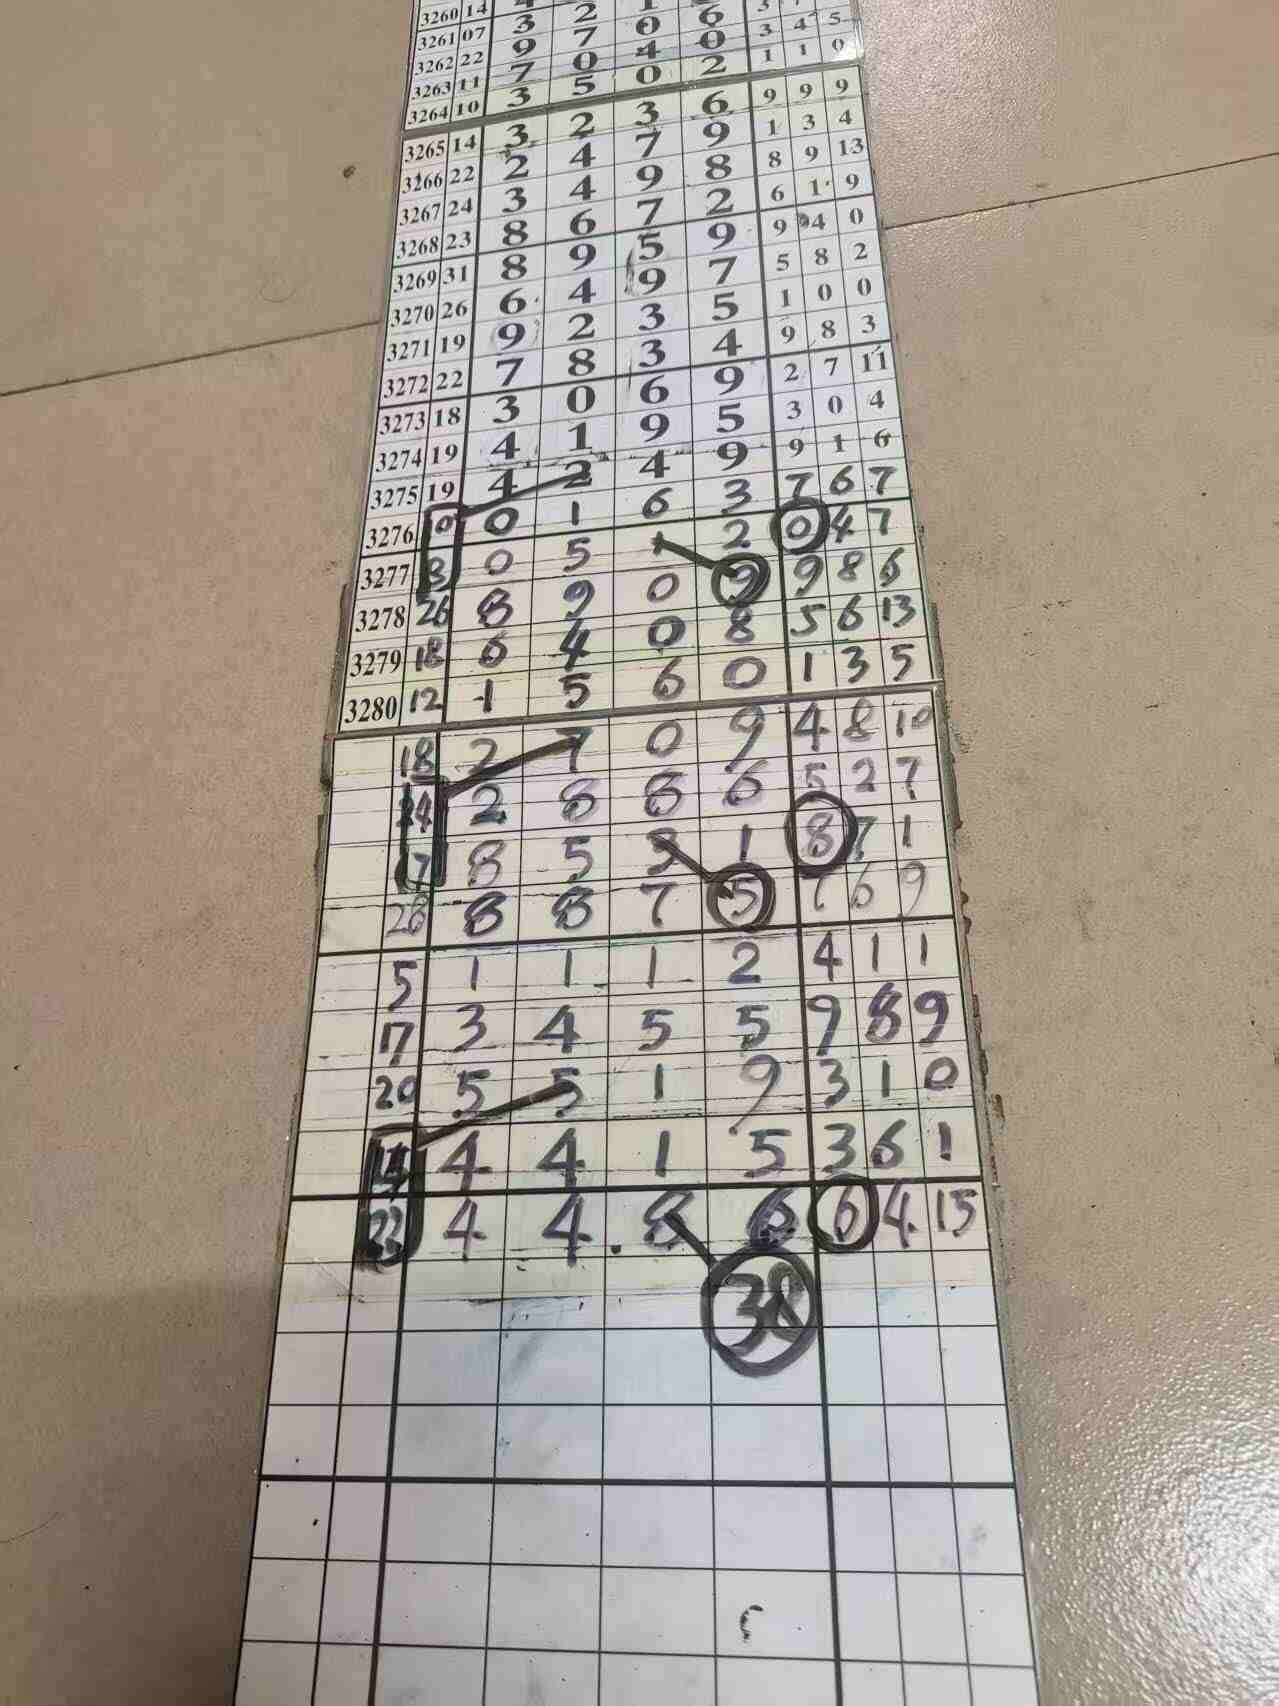 3260 14
3261 07 3 2
3262 22 9 7 0 6
3263 11 7 0 4 0 3 4 5
3264 10 3 5 0 2 1 1 0
3265 14 3 2 3 6 9 9 9
3266 22 2 4 7 9 1 3 4
3267 24 3 4 9 8 8 9 13
3268 23 8 6 7 2 6 1 9
3269 31 8 9 5 9 9 4 0
3270 26 6 4 9 7 5 8 2
3271 19 9 2 3 5 1 0 0
3272 22 7 8 3 4 9 8 3
3273 18 3 0 6 9 2 7 11
3274 19 4 1 9 5 3 0 4
3275 19 4 2 4 9 9 1 6
3276 10 0 1 6 3 7 6 7
3277 8 0 5 1 2 0 4 7
3278 26 8 9 0 9 9 8 6
3279 18 6 4 0 8 5 6 13
3280 12 1 5 6 0 1 3 5
18 2 7 0 9 4 8 10
24 2 8 8 6 5 2 7
17 8 5 3 1 8 7 1
28 8 8 7 5 7 6 9
5 1 1 1 2 4 1 1
17 3 4 5 5 9 8 9
20 5 5 1 9 3 1 0
14 4 4 1 5 3 6 1
22 4 4 8 6 6 4 15
38